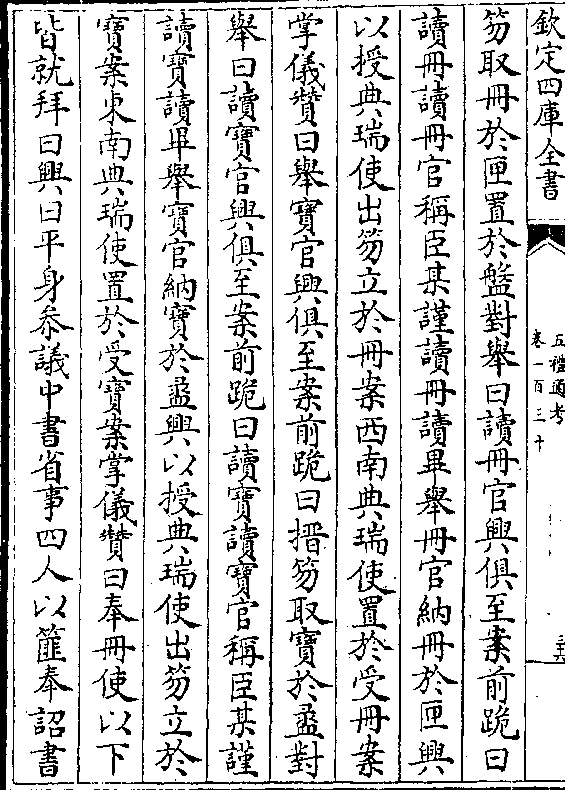 欽定四庫全書
五禮通考
卷一百三十
笏取冊於匣置於盤對舉曰讀冊官興俱至案前跪曰
讀冊讀冊官稱臣某謹讀冊讀畢舉冊官納冊於匣興
以授典瑞使出笏立於冊案西南典瑞使置於受冊案
掌儀贊曰舉寶官興俱至案前跪曰搢笏取寶於盝對
舉曰讀寶官興俱至案前跪曰讀寶讀寶官稱臣某謹
讀寶讀畢舉寶官納寶於盝興以授典瑞使出笏立於
寶案東南典瑞使置於受寶案掌儀贊曰奉冊使以下
皆就拜曰興曰平身叅議中書省事四人以篚奉詔書